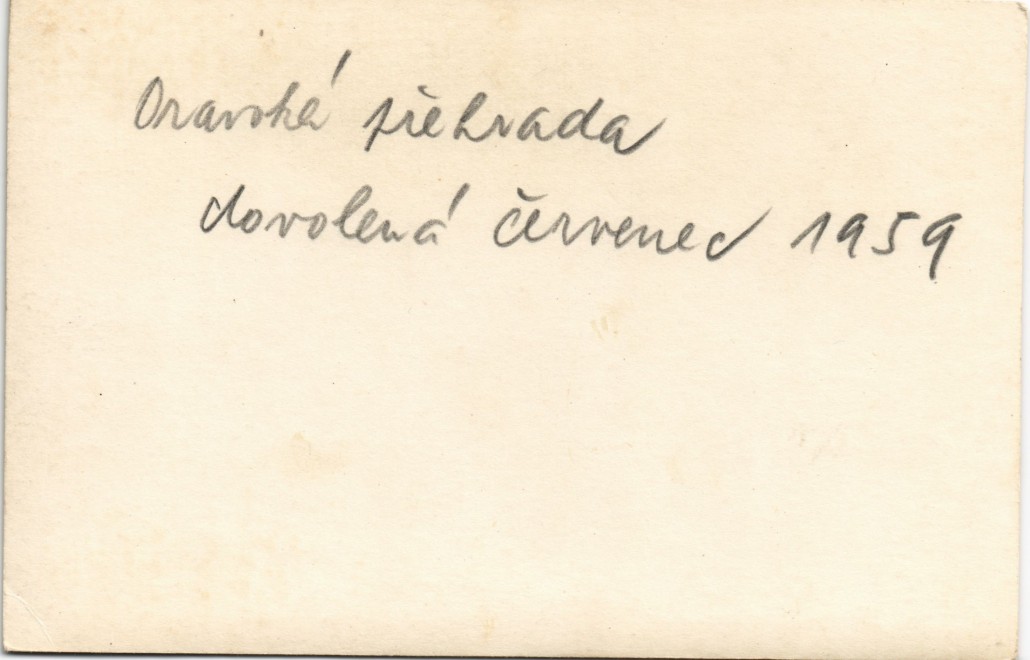 Oravská přehrada
dovolená červenec 1959